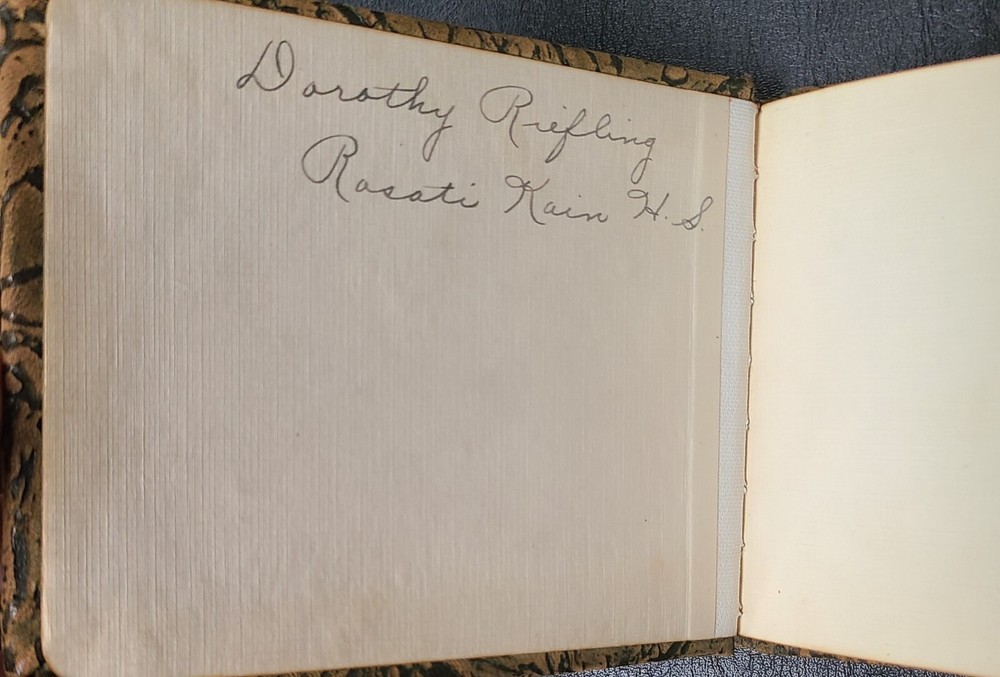 Dorothy Riefling
Rosati Kain H.S.